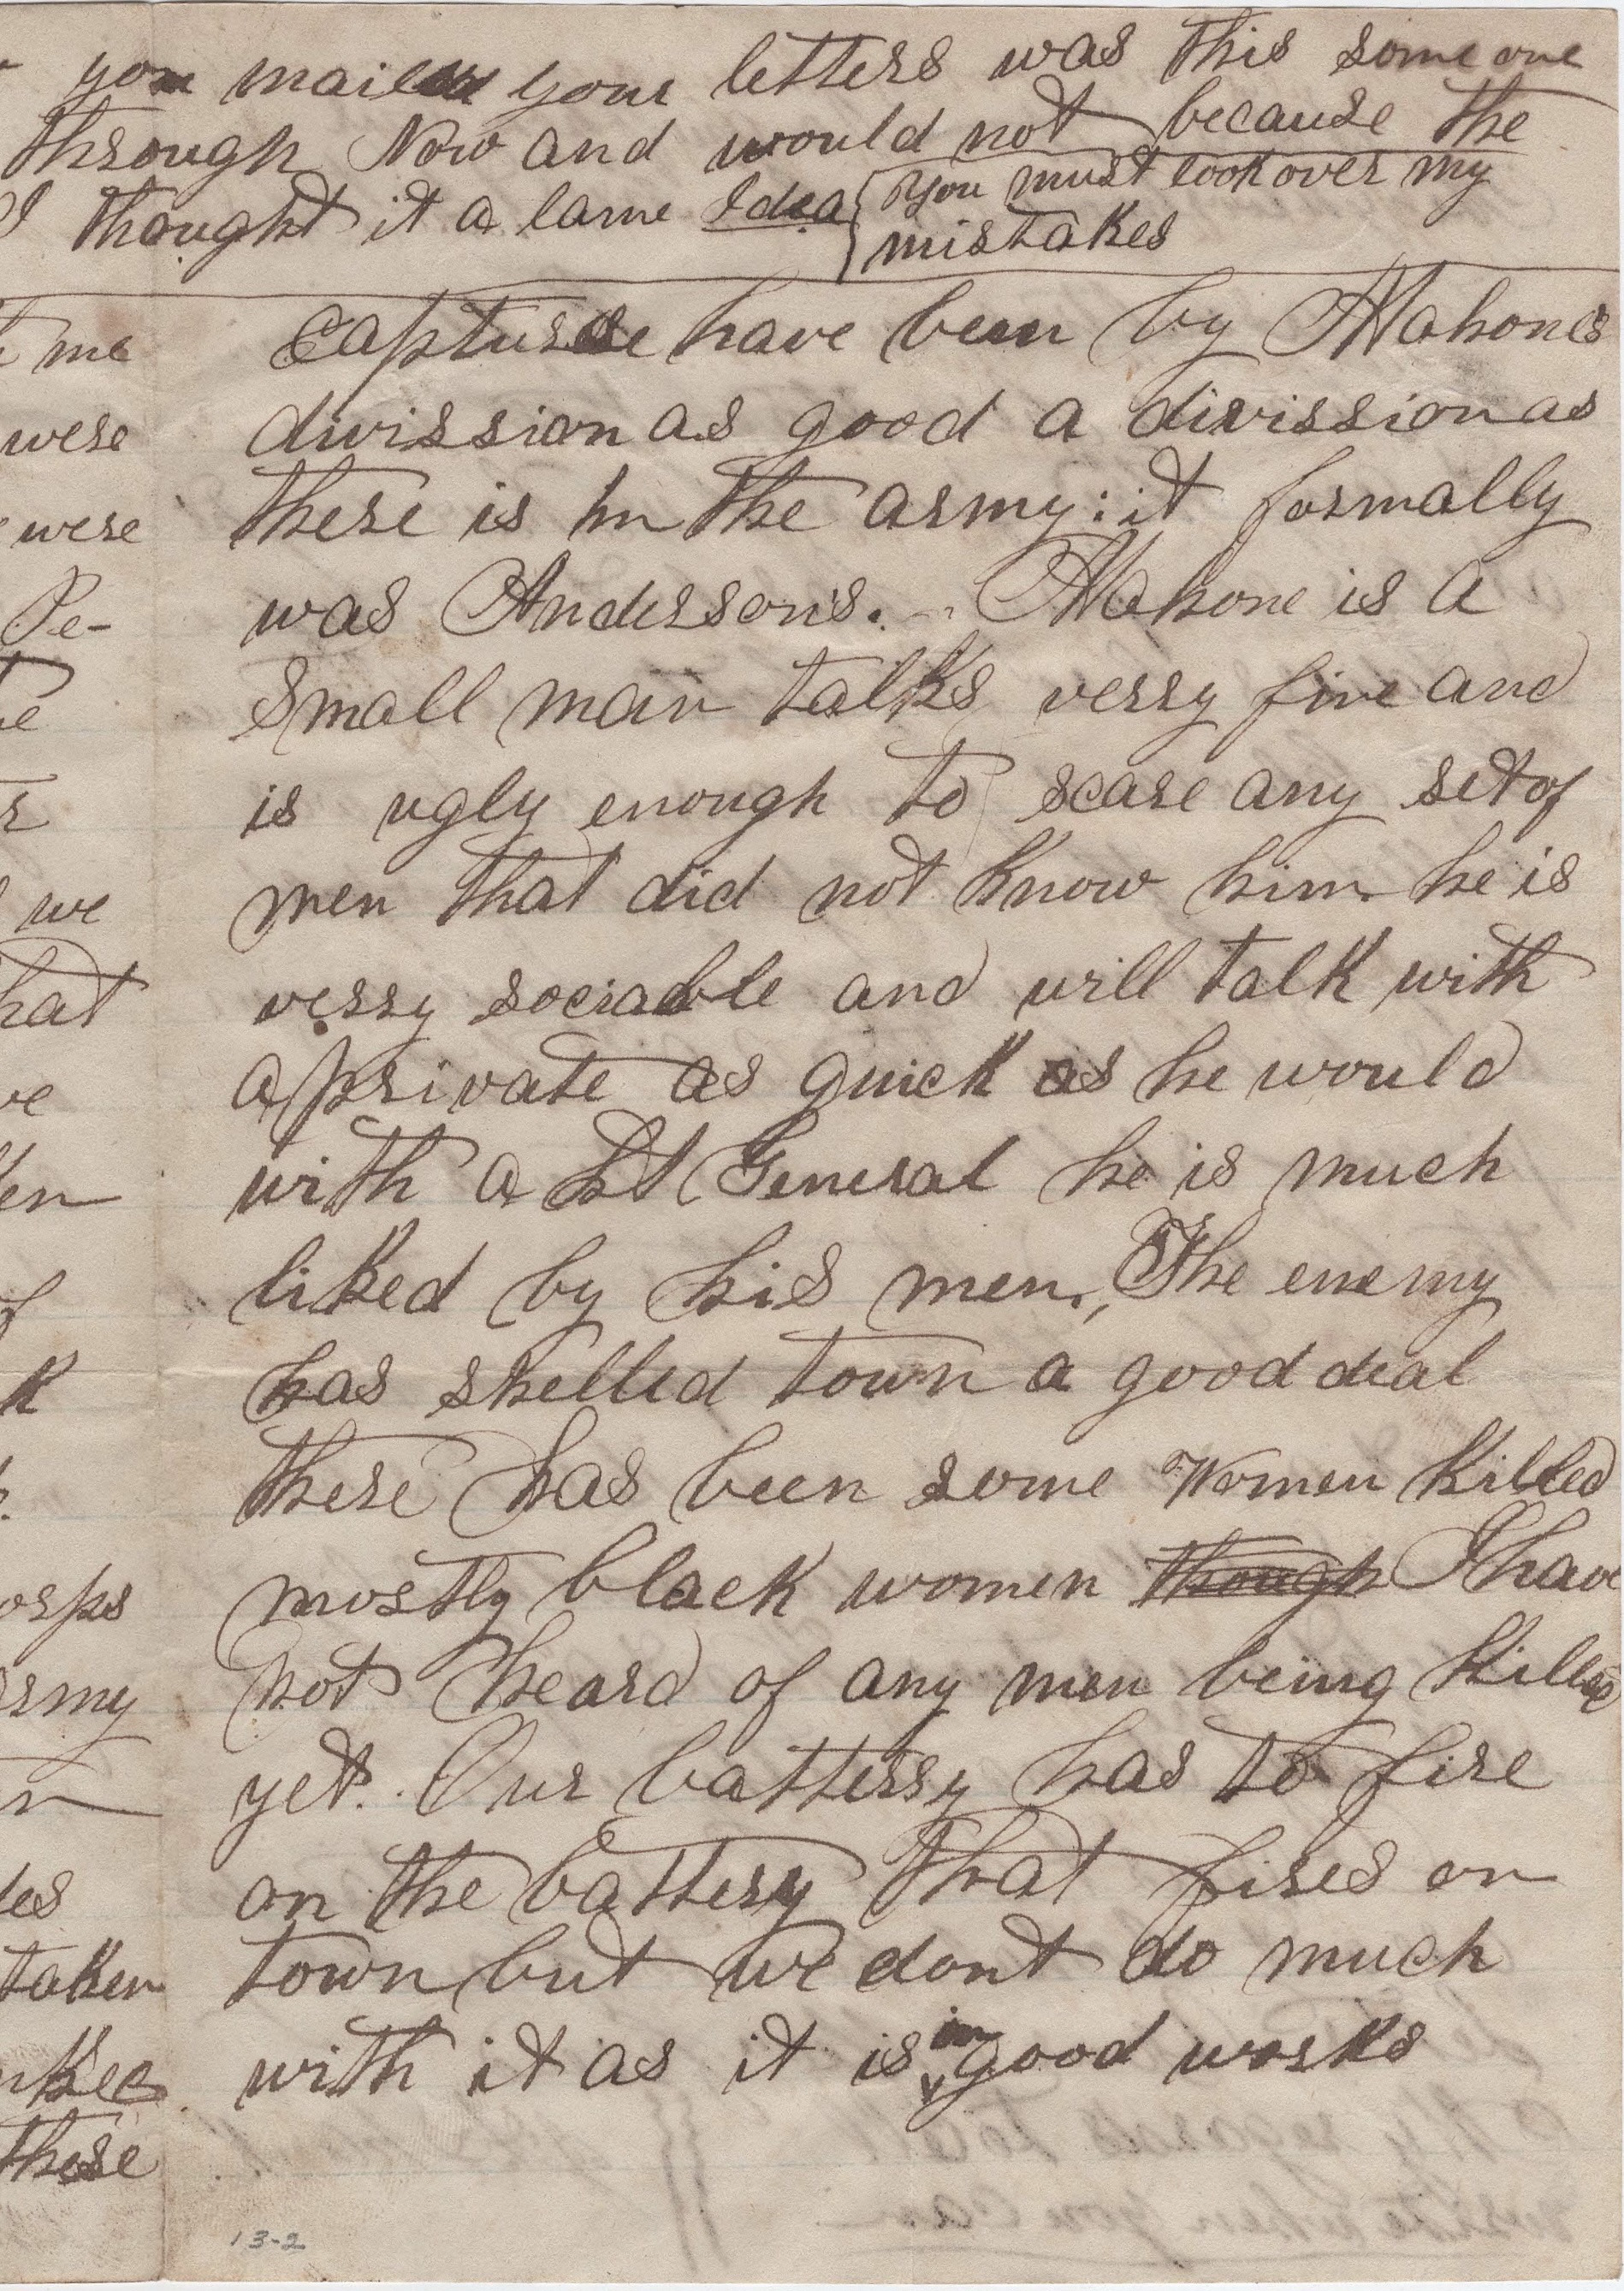 you mailed your letters was this some one
through Now and would not because the
I thought it a lame Idea { You must look over my
mistakes
me
were
were
Pe-
we
hat
ve
en
k
orps
army
des
taken
nkee
these
Captured have been by Mahones
divission as good a divission as
there is in the army: it formally
was Anderson's. Mahone is a
small man talks verry fine and
is ugly enough to scare any set of
men that did not know him he is
verry sociable and will talk with
a private as quick as he would
with a Lt General he is much
liked by his men., The enemy
has shelled town a good deal
there has been some Women killed
mostly black women though I have
not heard of any men being killed
yet. Our batterry has to fire
on the battery that fires on
town but we dont do much
with it as it is in good works
13-2